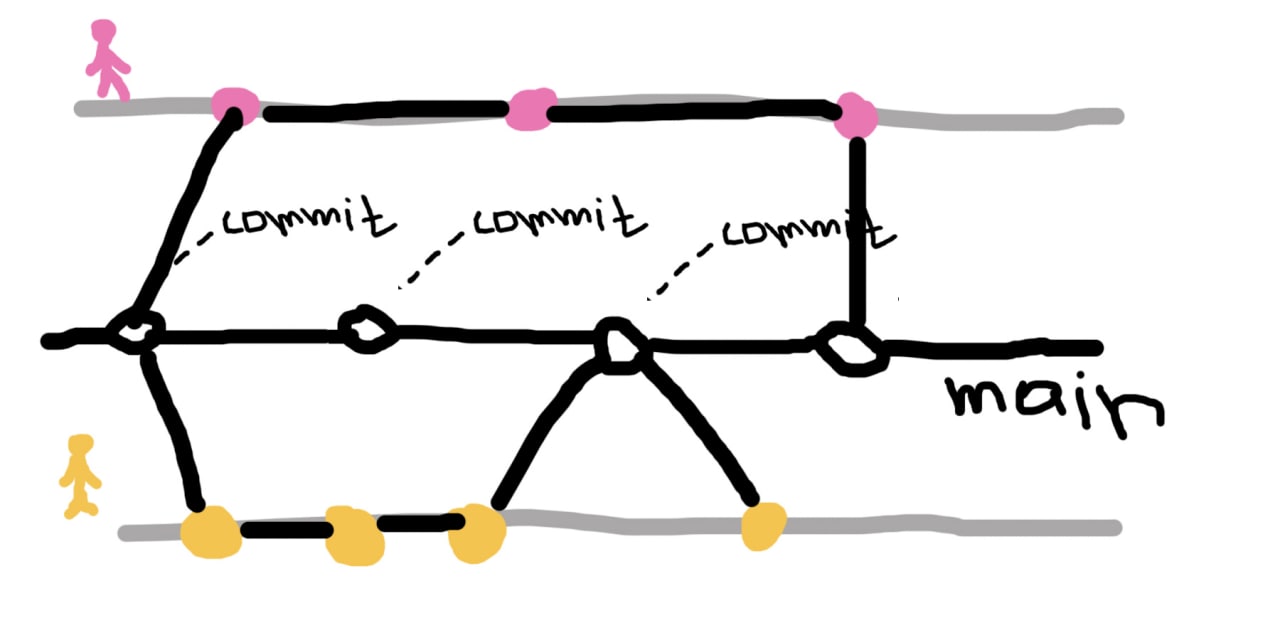 commit
commit
commit
main